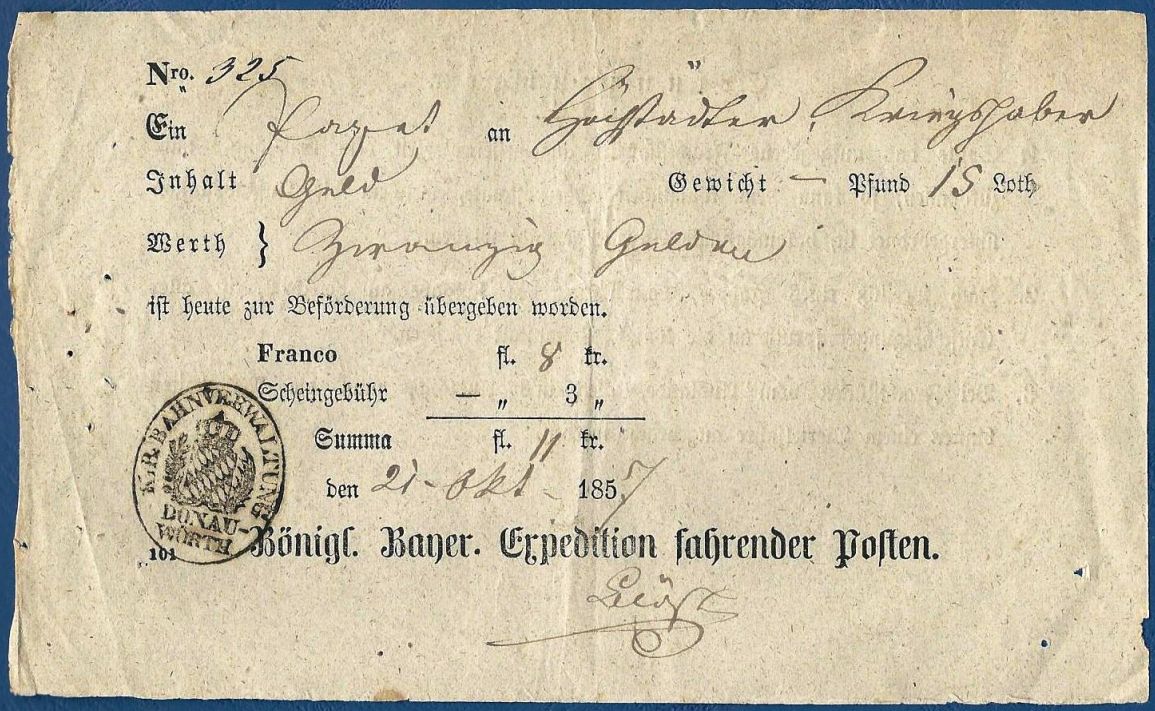 Nro. 325
Ein Paquet an Höchstädter, Kriegshaber
Inhalt Geld Gewicht — Pfund 15 Loth
Werth } Zwanzig Gulden
ist heute zur Beförderung übergeben worden.
Franco fl. 8 kr.
Scheingebühr — „ 3 „
Summa fl. 11 kr.
den 21. Okt. 1857
K.B. BAHNVERWALTUNG
DONAU-
WÖRTH
101
Königl. Bayer. Expedition fahrender Posten.